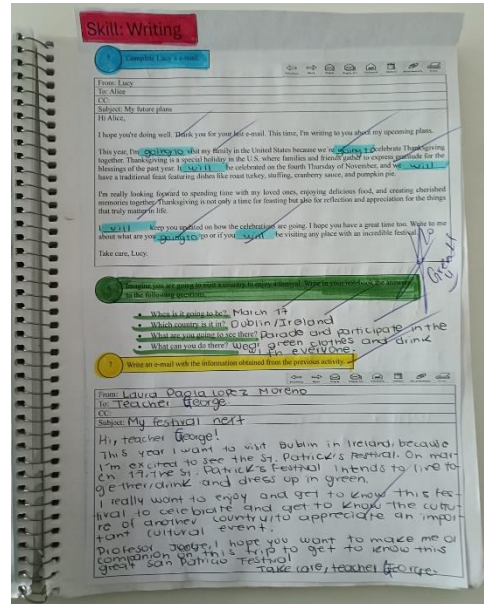 Skill: Writing
Complete Lucy's e-mail.
From: Lucy
To: Alice
CC:
Subject: My future plans
Hi Alice,
I hope you're doing well. Thank you for your last e-mail. This time, I'm writing to you about my upcoming plans.
This year, I'm going to visit my family in the United States because we're going t celebrate Thanksgiving
together. Thanksgiving is a special holiday in the U.S. where families and friends gather to express gratitude for the
blessings of the past year. It will be celebrated on the fourth Thursday of November, and we will
have a traditional feast featuring dishes like roast turkey, stuffing, cranberry sauce, and pumpkin pie.
I'm really looking forward to spending time with my loved ones, enjoying delicious food, and creating cherished
memories together. Thanksgiving is not only a time for feasting but also for reflection and appreciation for the things
that truly matter in life.
I will keep you updated on how the celebrations are going. I hope you have a great time too. Write to me
about what are you going to go or if you will be visiting any place with an incredible festival.
Take care, Lucy.
Great!
Imagine you are going to visit a country to enjoy a festival. Write in your notebook the answers
to the following questions.
When is it going to be? March 17
Which country is it in? Dublin/Ireland
What are you going to see there? Parade and participate in the
What can you do there? Wear green clothes and drink
with everyone.
7 Write an e-mail with the information obtained from the previous activity.
From: Laura Paola Lopez Moreno
To: Teacher George
CC:
Subject: My festival next
Hi, teacher George!
This year I want to visit Dublin in Ireland, because
I'm excited to see the St. Patrick's Festival. On mar-
ch 17, the St. Patrick's Festival intends to live to-
gether, drink and dress up in green.
I really want to enjoy and get to know this fes-
tival to celebrate and get to know the cultu-
re of another country, to appreciate an impor-
tant cultural event.
Profesor Jorge, I hope you want to make me a
companion on this trip to get to know this
great San Patricio Festival
Take care, teacher George.